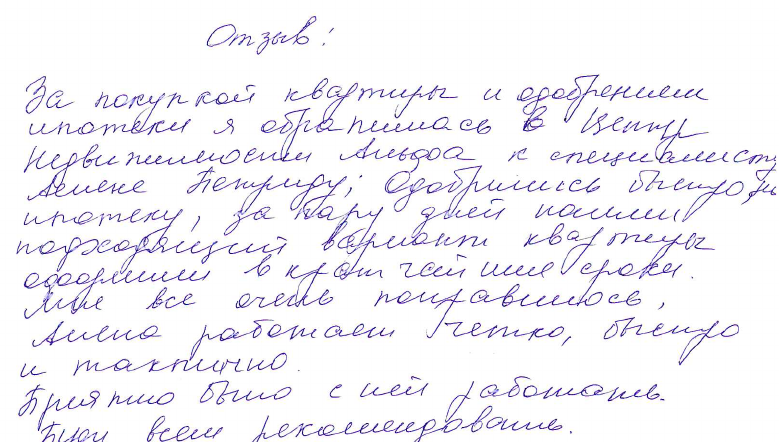 Отзыв!
За покупкой квартиры и одобрением
ипотеки я обратилась в Центр
Недвижимости Альфа к специалисту
Алене; Одобрились быстро
ипотеку, за пару дней нашли
подходящий вариант квартиры
оформили в кратчайшие сроки.
Мне все очень понравилось,
Алена работает четко, быстро
и тактично.
Приятно было с ней работать.
Буду всем рекомендовать.